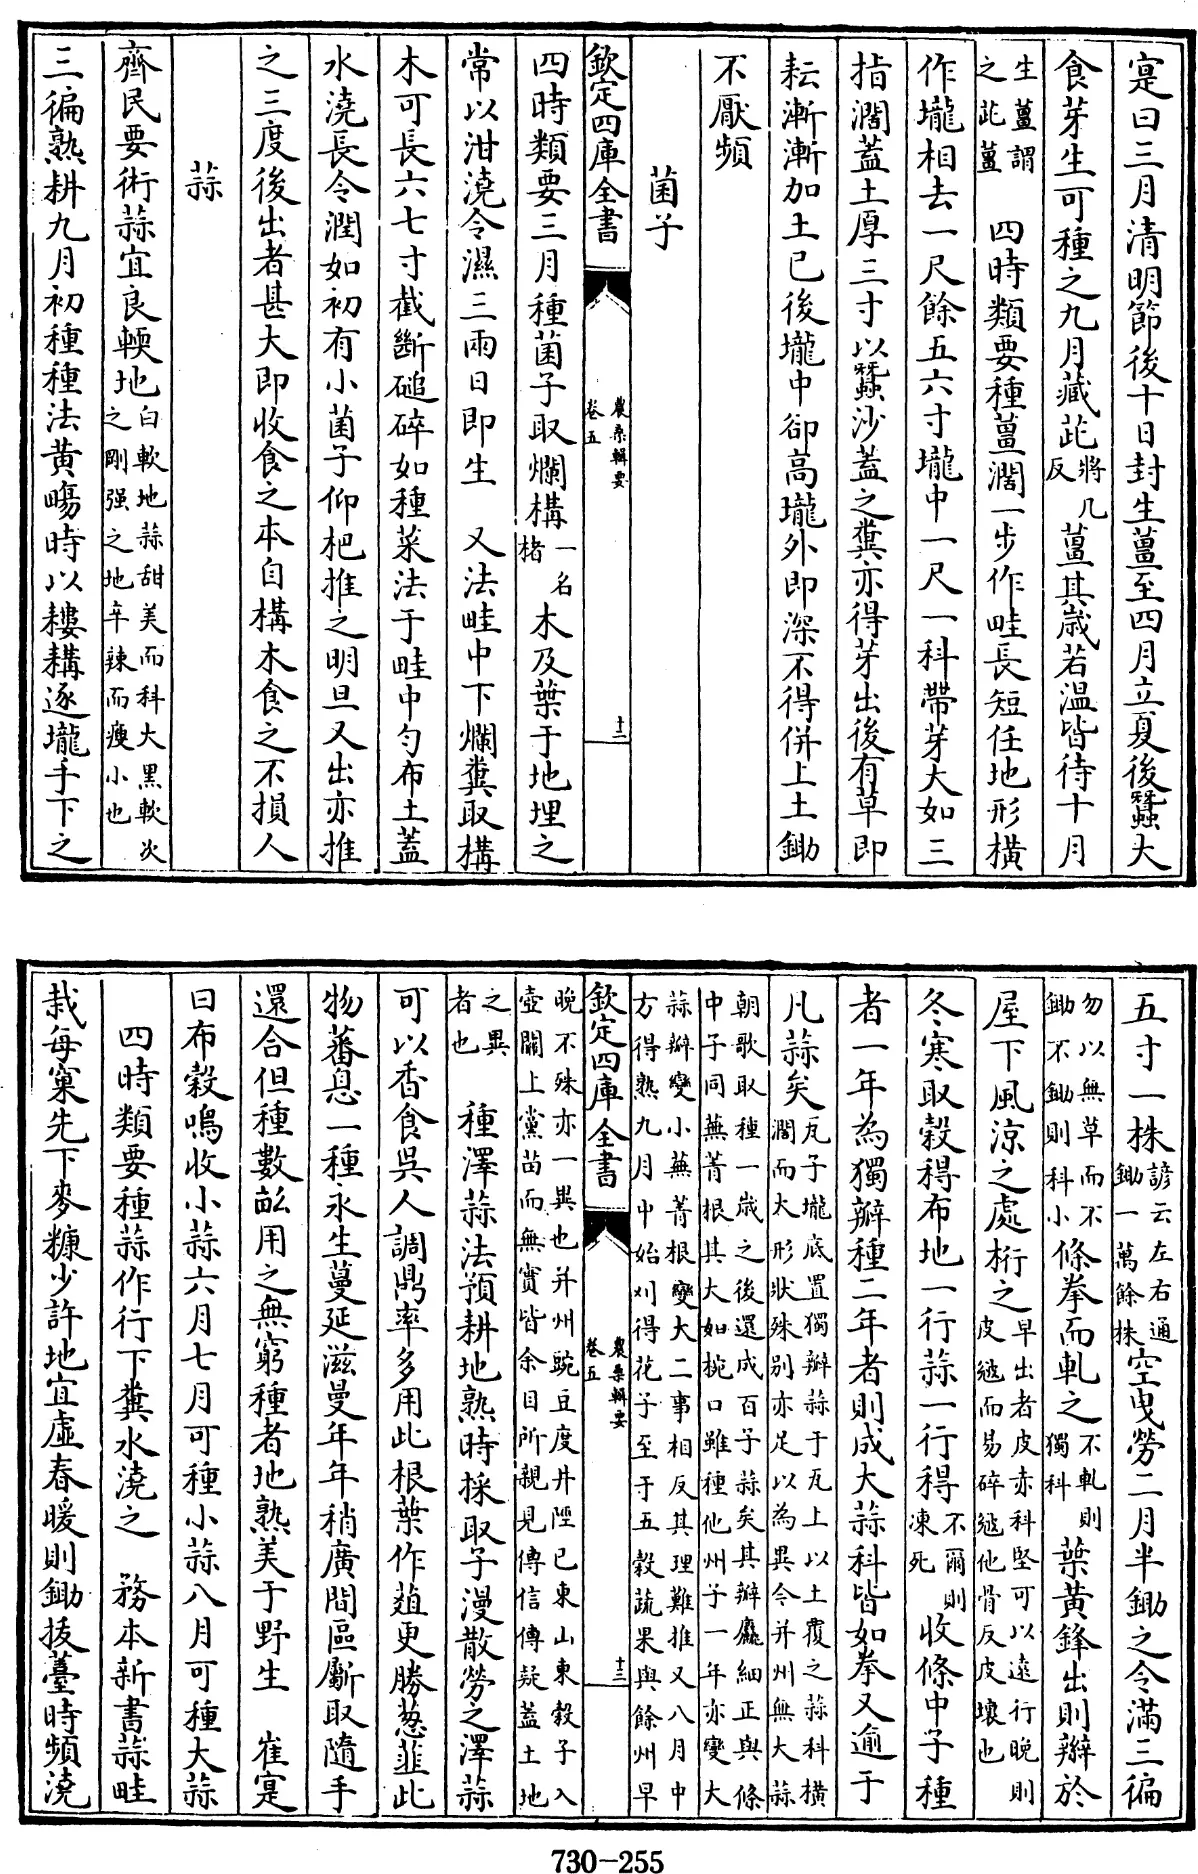 寔曰三月清明節後十日封生薑至四月立夏後蠶大
食芽生可種之九月藏茈將几反薑其歳若温皆待十月
生薑謂之茈薑　四時類要種薑濶一步作畦長短任地形橫
作壠相去一尺餘五六寸壠中一尺一科帶芽大如三
指濶蓋土厚三寸以蠶沙蓋之糞亦得芽出後有草即
耘漸漸加土已後壠中卻高壠外即深不得併上土鋤
不厭頻
菌子
欽定四庫全書　農桑輯要卷五　十二
四時類要三月種菌子取爛構一名楮木及葉于地埋之
常以泔澆令濕三兩日即生　又法畦中下爛糞取構
木可長六七寸截斷磓碎如種菜法于畦中匀布土蓋
水澆長令潤如初有小菌子仰杷推之明旦又出亦推
之三度後出者甚大即收食之本自構木食之不損人
蒜
齊民要術蒜宜良輭地白軟地蒜甜美而科大黑軟次之剛强之地辛辣而瘦小也
三徧熟耕九月初種種法黄畼時以耬耩逐壠手下之
五寸一株諺云左右通鋤一萬餘株空曳勞二月半鋤之令滿三徧
勿以無草而不鋤不鋤則科小條拳而軋之不軋則獨科葉黄鋒出則辮於
屋下風涼之處桁之早出者皮赤科堅可以遠行晚則皮皴而易碎皴他骨反皮壞也
冬寒取穀得布地一行蒜一行得不爾則凍死收條中子種
者一年為獨瓣種二年者則成大蒜科皆如拳又逾于
凡蒜矣瓦子壠底置獨瓣蒜于瓦上以土覆之蒜科橫濶而大形狀殊别亦足以為異今并州無大蒜
朝歌取種一歳之後還成百子蒜矣其瓣麤細正與條中子同蕪菁根其大如椀口雖種他州子一年亦變大
蒜瓣變小蕪菁根變大二事相反其理難推又八月中方得熟九月中始刈得花子至于五穀蔬果與餘州早
欽定四庫全書　農桑輯要卷五　十三
晚不殊亦一異也并州豌豆度井陘已東山東穀子入壺關上黨苗而無實皆余目所親見傳信傳疑蓋土地
之異者也　種澤蒜法預耕地熟時採取子漫散勞之澤蒜
可以香食吳人調鼎率多用此根葉作葅更勝葱韮此
物蕃息一種永生蔓延滋曼年年稍廣間區斸取隨手
還合但種數畝用之無窮種者地熟美于野生　崔寔
曰布穀鳴收小蒜六月七月可種小蒜八月可種大蒜
四時類要種蒜作行下糞水澆之　務本新書蒜畦
栽每窠先下麥糠少許地宜虛春暖則鋤拔薹時頻澆
730-255